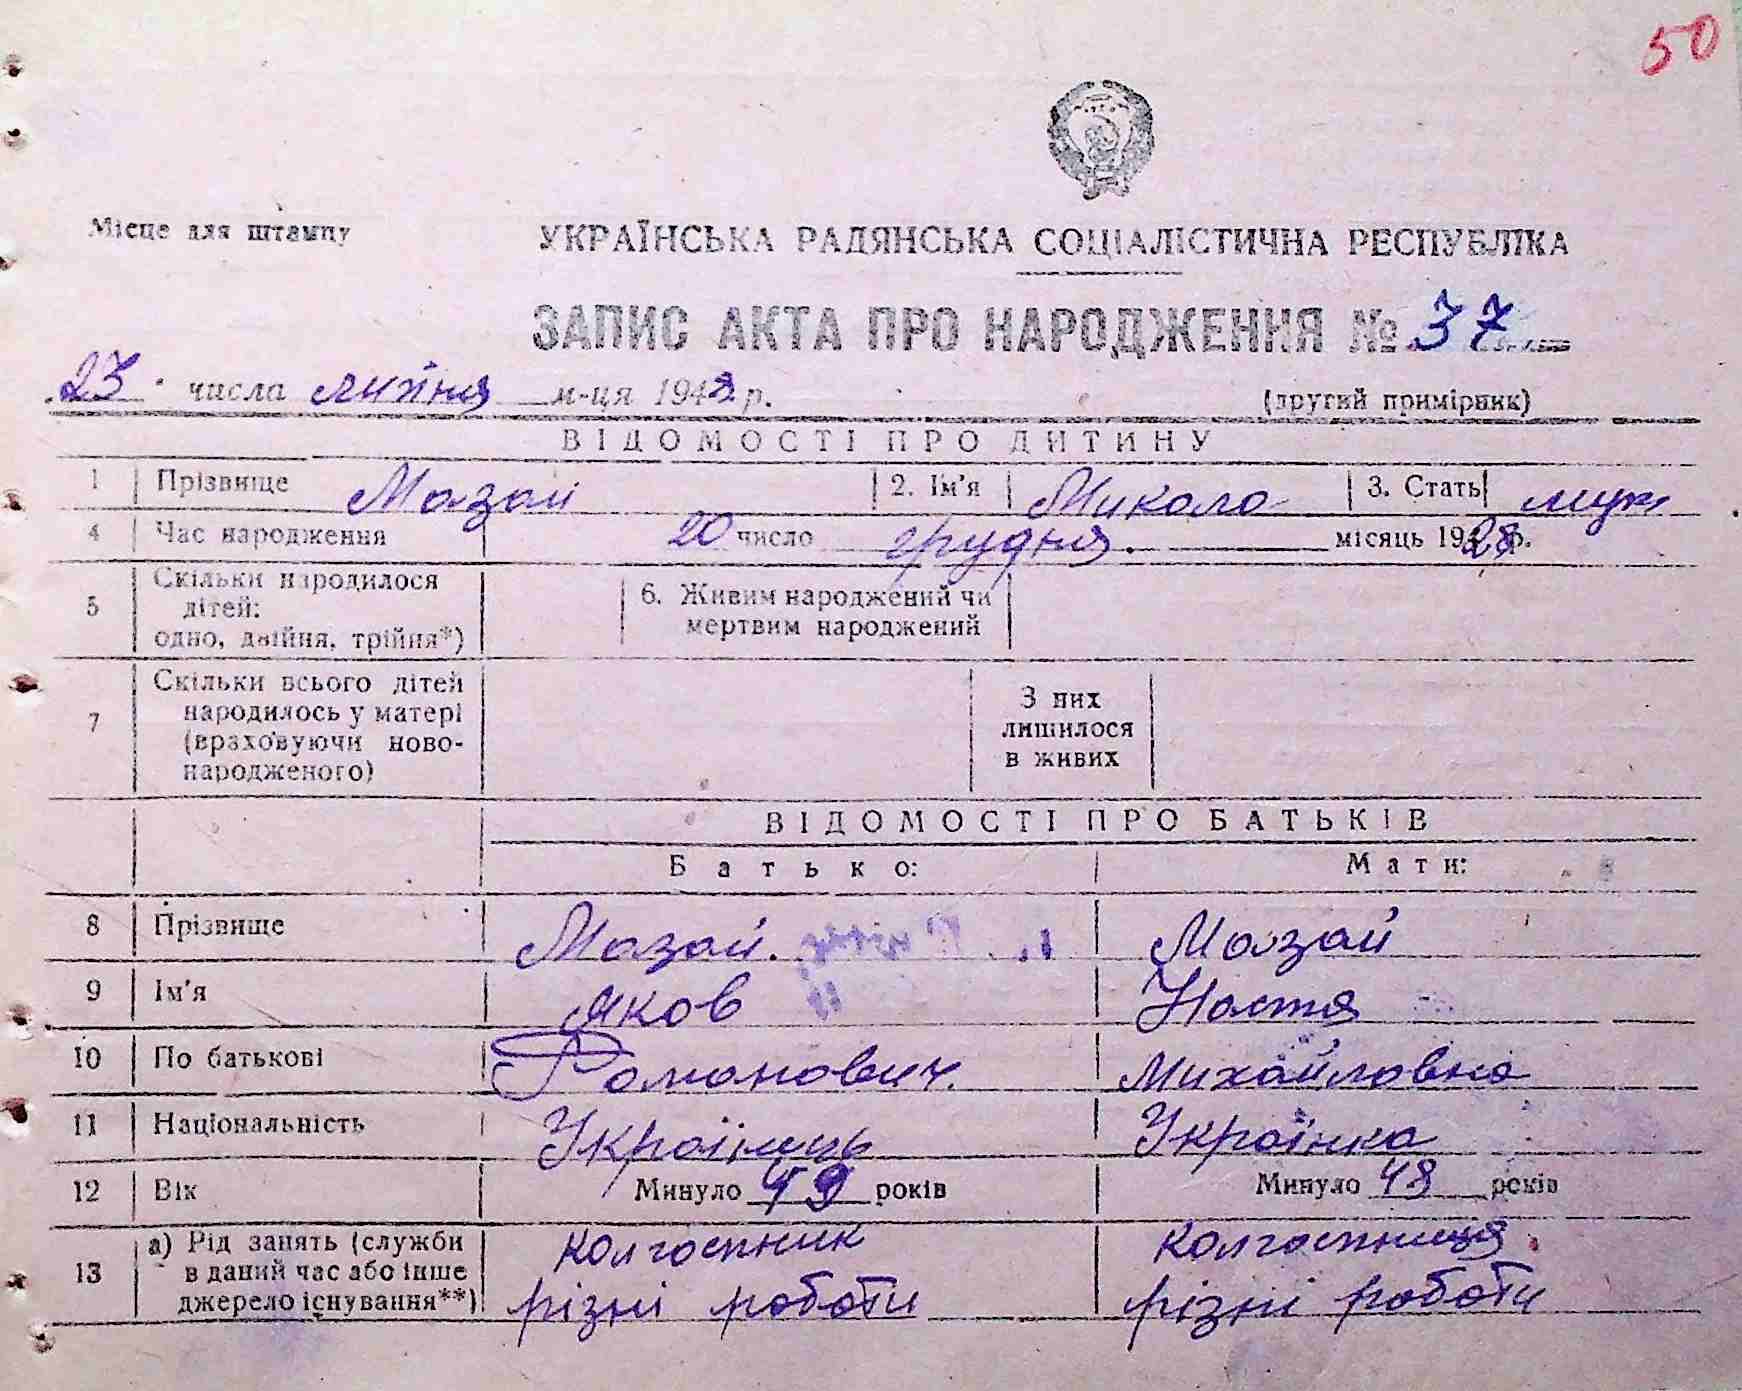 50
Місце для штампу
УКРАЇНСЬКА РАДЯНСЬКА СОЦІАЛІСТИЧНА РЕСПУБЛІКА
ЗАПИС АКТА ПРО НАРОДЖЕННЯ № 37
23 числа липня м-ця 1948 р.
(другий примірник)
ВІДОМОСТІ ПРО ДИТИНУ
1 Прізвище Мазай 2. Ім'я Микола 3. Стать муж
4 Час народження 20 число грудня місяць 1928 р.
5 Скільки народилося дітей: одно, двійня, трійня*) 6. Живим народжений чи мертвим народжений
7 Скільки всього дітей народилось у матері (враховуючи новонародженого) З них лишилося в живих
ВІДОМОСТІ ПРО БАТЬКІВ
Батько: Мати:
8 Прізвище Мазай. Мазай
9 Ім'я Яков Настя
10 По батькові Романович. Михайловна
11 Національність Українець Українка
12 Вік Минуло 49 років Минуло 48 років
13 а) Рід занять (служби в даний час або інше джерело існування**) колгоспник різні роботи колгоспниця різні роботи